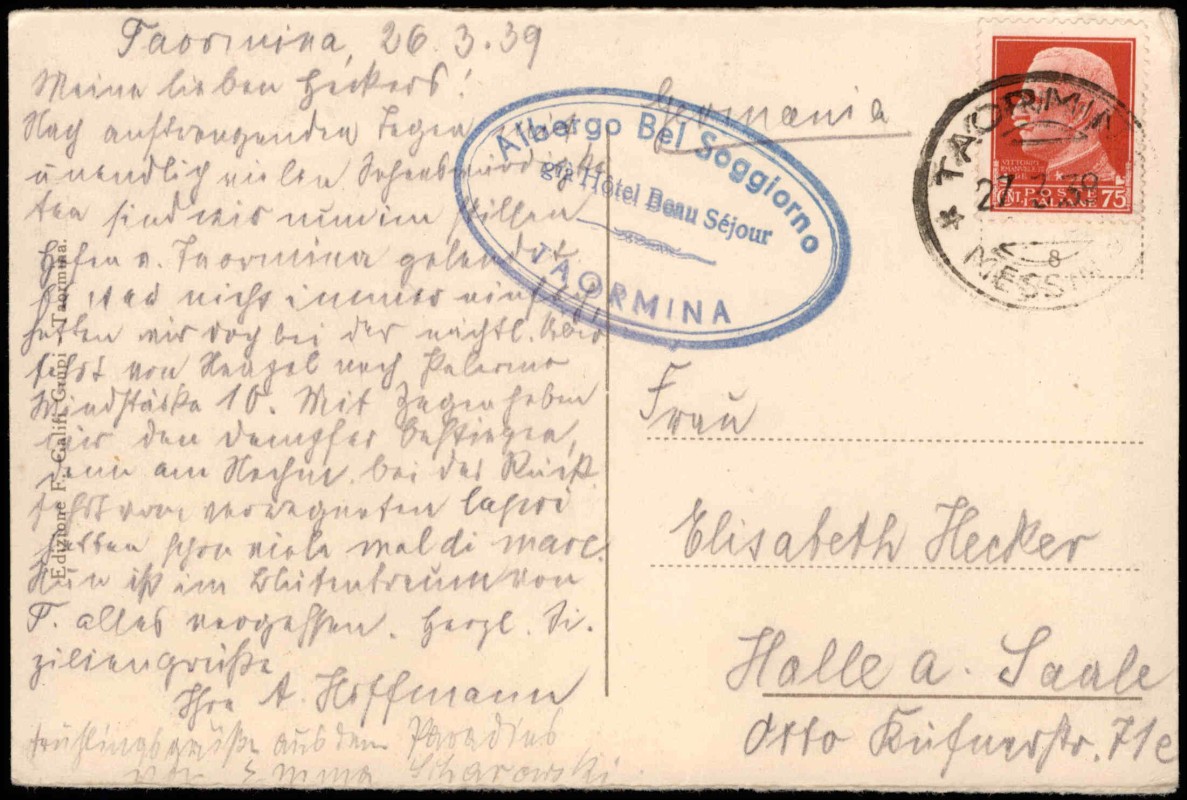 Taormina, 26.3.39
Meine lieben Heckers!
Nach anstrengenden Tagen mit
unendlich vielen Sehenswürdigkei-
ten sind wir nun im stillen
Hafen v. Taormina gelandet.
Es war nicht immer einfach
hatten wir doch bei der nächtl. Über
fahrt von Neapel nach Palermo
Windstärke 10. Mit Zagen haben
wir den Dampfer bestiegen,
denn am Nachm. bei der Rück
fahrt vom verregneten Capri
hatten schon viele mal di mare.
Nun ist im Blütentraum von
T. alles vergessen. Herzl. Si-
ziliengrüße
Ihre A. Hoffmann
Frühlingsgrüße aus dem Paradies
von Emma
Edizione F. Galifi Crupi - Taormina.
Albergo Bel Soggiorno
già Hôtel Beau Séjour
TAORMINA
Germania
VITTORIO
EMANUELE III
CENT. POSTE 75
ITALIANE
* TAORMINA
27.3.39
8
MESSINA
Frau
Elisabeth Hecker
Halle a. Saale
Otto Küfnerstr. 71c